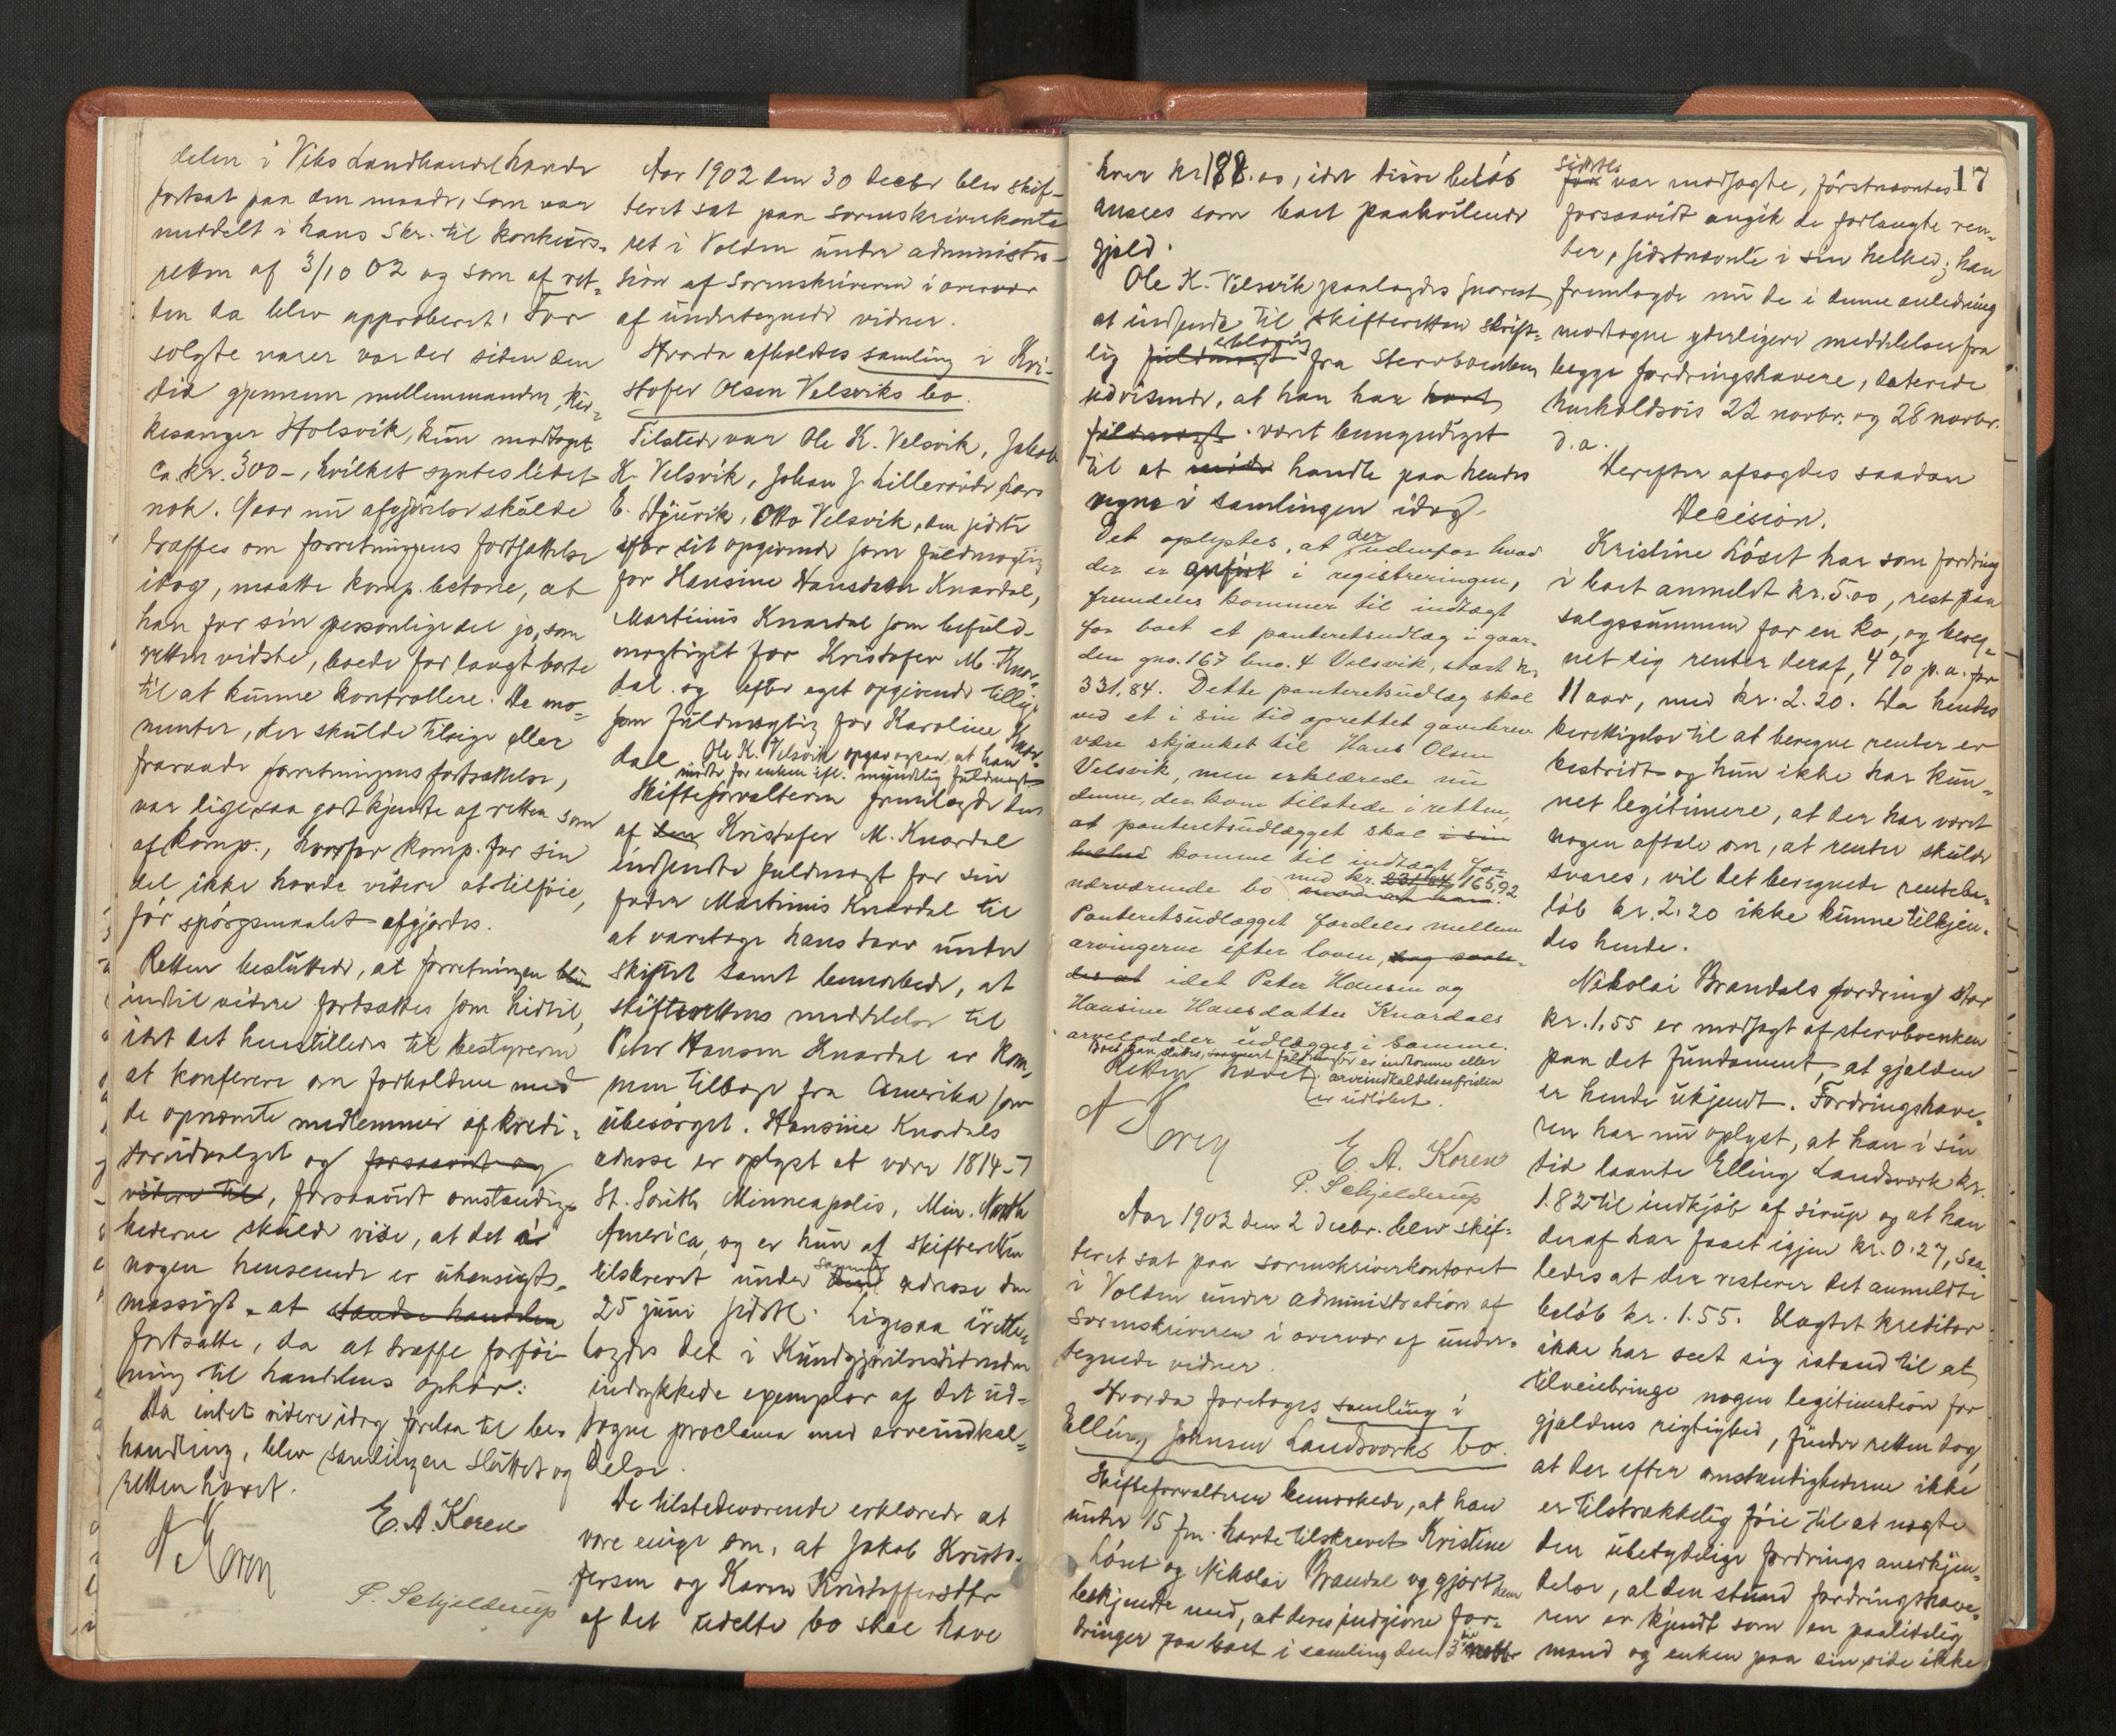 delen i Viks Landhandel havde
fortsat paa den maade, som var
meddelt i hans Skr. til konkurs-
retten af 3/10 02 og som af ret-
ten da blev approberet. For
solgte varer var der siden den
tid gjennem mellemmanden,
kesanger Holsvik, kun modtaget
ca. kr. 300-, hvilket syntes lidet
nok. Naar nu afgjörelse skulde
træffes om forretningens fortsættelse
idag, maatte komp. betone, at
han for sin personlige del jo, som
retten vidste, boede for langt borte
til at kunne kontrollere. De mo-
menter, der skulde tilsige eller
fraraade forretningens fortsættelse,
var ligesaa godt kjendte af retten som
af komp., hvorfor komp. for sin
del ikke havde videre at tilföie,
för spörgsmaalet afgjordes.
Retten besluttede, at forretningen blir
indtil videre fortsættes som hidtil,
idet det henstilledes til bestyreren
at konferere om forholdene med
de opnævnte medlemmer af kredi-
torudvalget og forsaavidt og
videre til, forsaavidt omstændig-
hederne skulde vise, at det i
nogen henseende er uhensigts-
mæssigt at standse handelen
fortsætte, da at træffe forföi-
ning til handelens ophör.
Da intet videre idag forelaa til be-
handling, blev samlingen sluttet og
retten hævet.
A Koren
E. A. Koren
P. Schjelderup
Aar 1902 den 30 decbr blev skif-
teret sat paa sorenskriverkonto
ret i Volden under administra-
sion af sorenskriveren i overvær
af undertegnede vidner.
Hvorda afholdtes samling i Kri-
stofer Olsen Velsviks bo.
Tilstede var Ole K. Velsvik, Jakob
K. Velsvik, Johan J. Lilleröide, Lars
E. Djuvik, Otto Velsvik, den sidste
efter sit opgivende som fuldmægtig
for Hansine Hansdatter Knardal,
Martinus Knardal som befuld-
mægtiget for Kristofer M. Knar-
dal og efter eget opgivende tillige
som fuldmægtig for Karoline Knar-
dal. Ole K. Velsvik opgav ogsaa, at han
mödte for enken efl. mundtlig fuldmagt
Skifteforvalteren fremlagde den
af den Kristofer M. Knardal
indsendte fuldmagt for sin
fader Martinus Knardal til
at varetage hans tarv under
skiftet samt bemærkede, at
skifterettens meddelelse til
Peter Hansen Knardal er kom-
men tilbage fra Amerika som
ubesörget. Hansine Knardals
adresse er oplyst at være 1814-7
St. South Minneapolis, Min. North
America, og er hun af skifteretten
tilskrevet under samme adresse den
25 juni sidstl. Ligesaa irette-
lagdes det i Kundgjörelsestidenden
indrykkede exemplar af det ud-
tagne proclama med arveindkal-
delse.
De tilstedeværende erklærede at
være enige om, at Jakob Kristo-
fersen og Karen Kristoffersdtr
af det udelte bo skal have
hver kr. 188.00, idet disse beløb
ansees som boet paahvilende
gjæld.
Ole K. Velsvik paalagdes snarest
at indsende til skifteretten skrift-
lig fuldmagt erklæring fra sterboenken
udvisende, at han har havt
fuldmagt været bemyndiget
til at möde handle paa hendes
vegne i samlingen idag.
Det oplystes, at der udenfor hvad
der er anført i registreringen,
fremdeles kommer til indtægt
for boet et panteretsudlæg i gaar-
den gno. 167 bno. 4 Velsvik, stort kr.
331,84. Dette panteretsudlæg skal
ved et i sin tid oprettet gavebrev
være skjænket til Hans Olsen
Velsvik, men erklærede nu
denne, der kom tilstede i retten,
at panteretsudlægget skal i sin
helhed komme til indtægt for
nærværende bo med kr. 331,84 165,92
Panteretsudlægget fordeles mellem
arvingerne efter loven, dog saale-
des at idet Peter Hansen og
Hansine Hansdatter Knardals
arvelodder udlægges i samme.
Boet kan sluttes, saasnart fuldmagter er indkomne eller
arveindkaldelsesfristen
er udløbet.
Retten hævet.
A Koren
E. A. Koren
P. Schjelderup
Aar 1902 den 2 decbr. blev skif-
teret sat paa sorenskriverkontoret
i Volden under administration af
sorenskriveren i overvær af under-
tegnede vidner.
Hvorda foretoges samling i
Elling Jonsen Landsværks bo.
Skifteforvalteren bemærkede, at han
under 15 f.m. havde tilskrevet Kristine
Löset og Nikolai Brandal og gjort dem
bekjendte med, at deres indgivne for-
dringer paa boet i samling den 3 novbr
17
sidstl.
for var modsagte, förstnævntes
forsaavidt angik de forlangte ren-
ter, sidstnævnte i sin helhed; han
fremlagde nu de i denne anledning
modtagne yderligere meddelelser fra
begge fordringshavere, daterede
henholdsvis 22 novbr. og 28 novbr.
d. a.
Derefter afsagdes saadan
Decision.
Kristine Löset har som fordring
i boet anmeldt kr. 5.00, rest paa
salgssummen for en ko, og bereg-
net sig renter deraf, 4 % p. a. for
11 aar, med kr. 2.20. Da hendes
berettigelse til at beregne renter er
bestridt og hun ikke har kun-
net legitimere, at der har været
nogen aftale om, at renter skulde
svares, vil det beregnede rentebe-
löb kr. 2.20 ikke kunne tilkjen-
des hende.
Nikolai Brandals fordring stor
kr. 1.55 er modsagt af sterboenken
paa det fundament, at gjælden
er hende ukjendt. Fordringshave-
ren har nu oplyst, at han i sin
tid laante Elling Landsværk kr.
1.82 til indkjöb af sirup og at han
deraf har faaet igjen kr. 0.27, saa-
ledes at der resterer det anmeldte
belöb kr. 1.55. Uagtet kreditor
ikke har seet sig istand til at
tilveiebringe nogen legitimation for
gjældens rigtighed, finder retten dog,
at der efter omstændighederne ikke
er tilstrækkelig föie til at nægte
den ubetydelige fordrings anerkjen-
delse, al den stund fordringshave-
ren er kjendt som en paalidelig
mand og enken paa sin side ikke